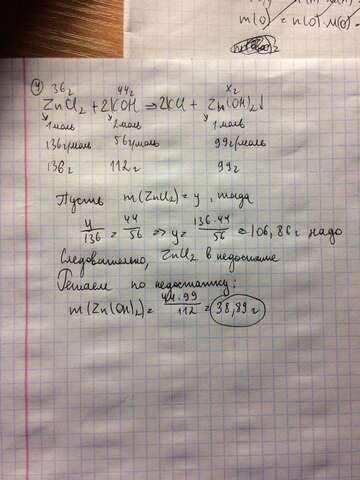 m(O) = n(O)·M(O)
④ 36г 44г xг
ZnCl₂ + 2KOH ⇒ 2KCl + Zn(OH)₂↓
1 моль 2 моль 1 моль
136г/моль 56г/моль 99г/моль
136г 112г 99г
Пусть m(ZnCl₂) = y, тогда
y/136 = 44/56 ⇒ y = 136·44/56 = 106,86г надо
Следовательно, ZnCl₂ в недостатке
Решаем по недостатку:
m(Zn(OH)₂) = 44·99/112 = 38,89г